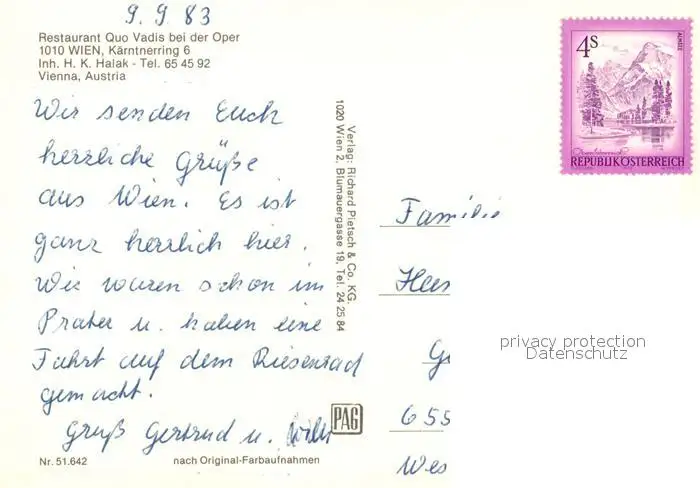 9.9.83
Restaurant Quo Vadis bei der Oper
1010 WIEN, Kärntnerring 6
Inh. H. K. Halak - Tel. 65 45 92
Vienna, Austria
Wir senden Euch
herzliche Grüße
aus Wien. Es ist
ganz herrlich hier.
Wir waren schon im
Prater u. haben eine
Fahrt auf dem Riesenrad
gemacht.
Gruß Gertrud u.
Nr. 51.642
nach Original-Farbaufnahmen
Verlag: Richard Pietsch & Co. KG.
1020 Wien 2, Blumauergasse 19, Tel. 24 25 84
PAG
4S
ALMSEE
REPUBLIK ÖSTERREICH
Familie
655
privacy protection
Datenschutz